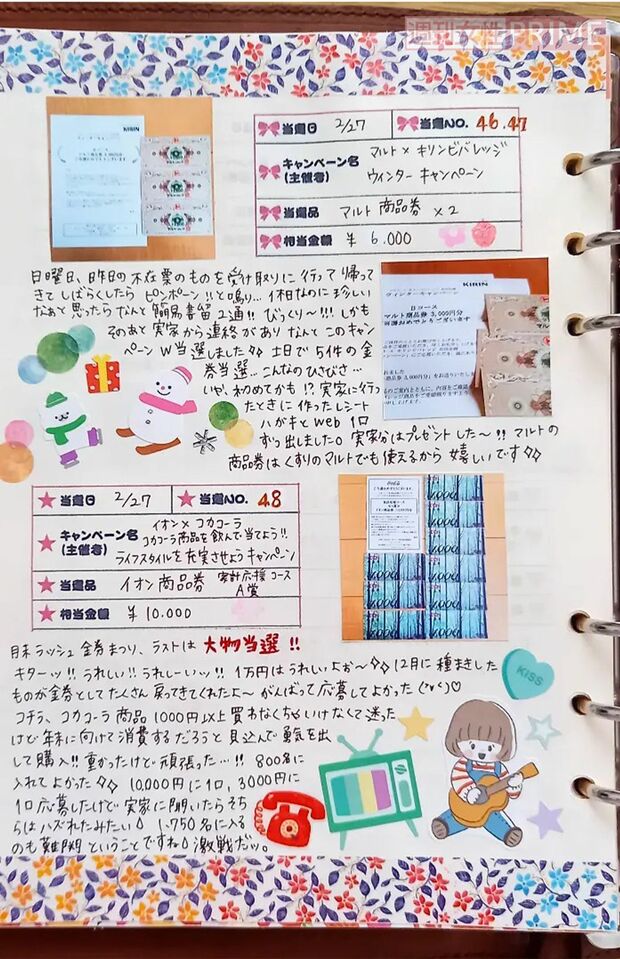 週刊女性PRIME
当選日 2/27 当選NO. 46.47
キャンペーン名 マルト×キリンビバレッジ
(主催者) ウィンターキャンペーン
当選品 マルト商品券 ×2
相当金額 ¥ 6.000
KIRIN
日曜日、昨日の不在票のものを受け取りに行って帰って
きてしばらくしたら ピンポーン!!と鳴り… 休日なのに珍しい
なぁと思ったらなんと 簡易書留2通!! びっくり〜!!! しかも
そのあと実家から連絡があり なんと このキャン
ペーン W当選しました 土日で5件の金
券当選… こんなのひさびさ…
いや、初めてかも!? 実家に行っ
たときに作ったレシート
ハガキとweb 1口
ずつ出しました。 実家分はプレゼントした〜!! マルトの
商品券はくすりのマルトでも使えるから 嬉しいです
KIRIN
ウィンターキャンペーン
Bコース
マルト商品券 3,000円分
当選おめでとうございます
当選日 2/27 当選NO. 48
キャンペーン名 イオン×コカコーラ
(主催者) コカコーラ商品を飲んで当てよう!!
ライフスタイルを充実させようキャンペーン
当選品 イオン商品券 家計応援コース
A賞
相当金額 ¥ 10.000
月末ラッシュ 金券まつり、ラストは 大物当選 !!
キターッ!! うれしい!! うれしーいッ!! 1万円はうれしいよぉ〜 12月に種まきした
ものが金券としてたくさん 戻ってきてくれたよ〜 がんばって応募してよかった♡
コチラ、コカコーラ商品 1000円以上買わなくちゃいけなくて迷った
けど年末に向けて消費するだろうと見込んで勇気を出
して購入!! 重かったけど頑張った…!! 800名に
入れてよかった 10,000円に1口、3000円に
1口応募したけど実家に聞いたらそち
らはハズれたみたい 1.750名に入る
のも難関ということですね 激戦だッ。
KISS